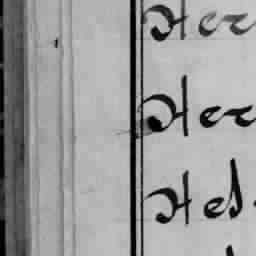 Her
Her
Hes